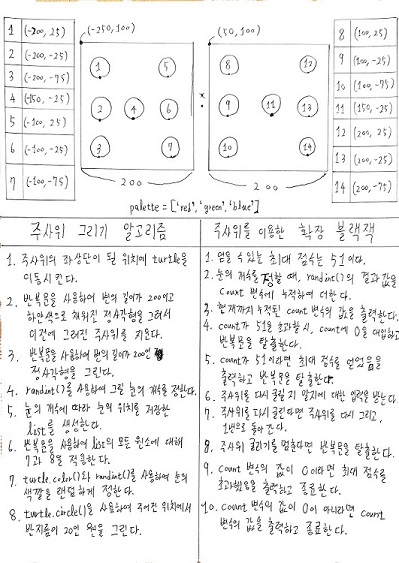 1 (-200, 25)
2 (-200, -25)
3 (-200, -75)
4 (-150, -25)
5 (-100, 25)
6 (-100, -25)
7 (-100, -75)
(-250, 100)
1
5
2
4
6
3
7
200
(50, 100)
8
12
9
11
13
10
14
200
8 (100, 25)
9 (100, -25)
10 (100, -75)
11 (150, -25)
12 (200, 25)
13 (200, -25)
14 (200, -75)
palette = ['red', 'green', 'blue']
주사위 그리기 알고리즘
1. 주사위의 좌상단이 될 위치에 turtle을
이동시킨다.
2. 반복문을 사용하여 변의 길이가 200이고
하얀색으로 채워진 정사각형을 그려서
이전에 그려진 주사위를 지운다.
3. 반복문을 사용하여 변의 길이가 200인
정사각형을 그린다.
4. randint()를 사용하여 그릴 눈의 개수를 정한다.
5. 눈의 개수에 따라 눈의 위치를 저장한
list를 생성한다.
6. 반복문을 사용하여 list의 모든 원소에 대해
7과 8을 적용한다.
7. turtle.color()와 randint()를 사용하여 눈의
색깔을 랜덤하게 정한다.
8. turtle.circle()을 사용하여 주어진 위치에서
반지름이 20인 원을 그린다.
주사위를 이용한 확장 블랙잭
1. 얻을 수 있는 최대 점수는 51이다.
2. 눈의 개수를 정할 때, randint()의 결과값을
count 변수에 누적하여 더한다.
3. 현재까지 누적된 count 변수의 값을 출력한다.
4. count가 51을 초과할 시, count에 0을 대입하고
반복문을 탈출한다.
5. count가 51이라면 최대 점수를 얻었음을
출력하고 반복문을 탈출한다.
6. 주사위를 다시 굴릴 지 말지에 대한 입력을 받는다.
7. 주사위를 다시 굴린다면 주사위를 다시 그리고,
2번으로 돌아간다.
8. 주사위 굴리기를 멈춘다면 반복문을 탈출한다.
9. count 변수의 값이 0이라면 최대 점수를
초과했음을 출력하고 종료한다.
10. count 변수의 값이 0이 아니라면 count
변수의 값을 출력하고 종료한다.